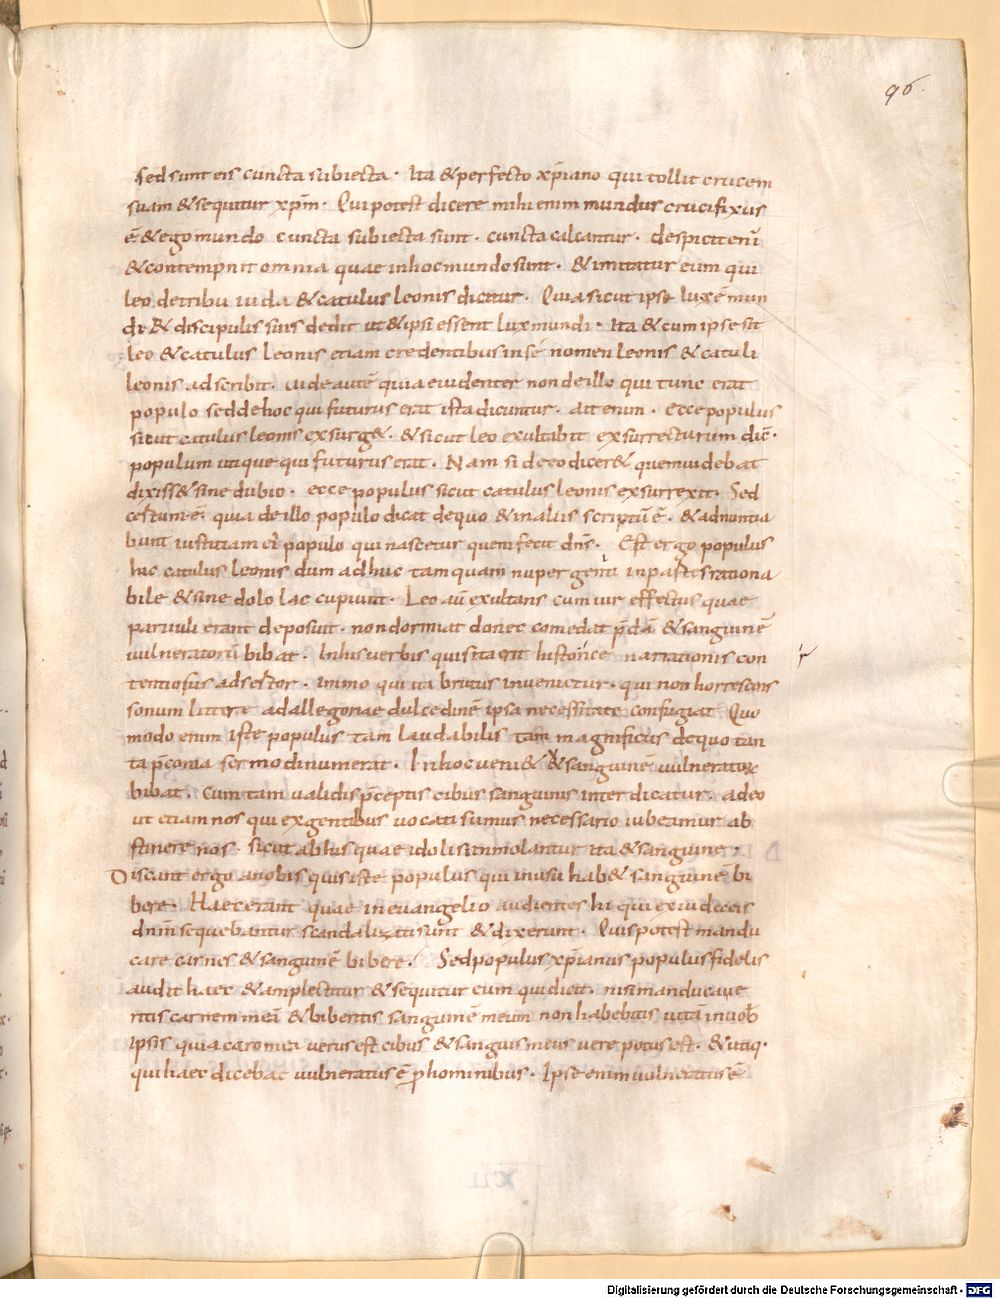 96.
Sed sunt eis cuncta subiecta · Ita & perfecto xp̄iano qui tollit crucem
suam & sequitur xp̄m · Qui potest dicere mihi enim mundus crucifixus
ē & ego mundo cuncta subiecta sunt · cuncta calcantur · despicit enī
& contempnit omnia quae in hoc mundo sunt · & imitatur eum qui
leo de tribu iuda & catulus leonis dicitur · Quia sicut ipse lux ē mun
di & discipulis suis dedit ut & ipsi essent lux mundi · Ita & cum ipse sit
leo & catulus leonis etiam credentibus in sē nomen leonis & catuli
leonis adscribit · uide autē quia euidenter non de illo qui tunc erat
populo sed de hoc qui futurus erat ista dicuntur · ait enim · Ecce populus
sicut catulus leonis exsurg& · & sicut leo exultabit exsurrecturum dic̄ ·
populum utique qui futurus erat · Nam si de eo dicer& quem uidebat
dixiss& sine dubio · ecce populus sicut catulus leonis exsurrexit · Sed
certum ē · quia de illo populo dicat de quo & in aliis scriptū ē · & adnontia
bunt iustitiam ei populo qui nascetur quem fecit dn̄s · Est ergo populus
hic catulus leonis dum adhuc tamquam nuper geniti infantes rationa
bile & sine dolo lac cupiunt · Leo aū exultans cum uir effectus quae
paruuli erant deposuit · non dormiat donec comedat p̄dā & sanguinē
uulneratorū bibat · In his uerbis quis ita erit historice narrationis con
tentiosus adsertor · immo qui ita brutus inuenietur · qui non horrescens
sonum litterae ad allegoriae dulcedinē ipsa necessitate confugiat Quo
modo enim iste populus tam laudabilis tam magnificus de quo tan
ta p̄conia sermo dinumerat · In hoc ueni& & sanguinē uulneratorꝝ
bibat · Cum tam ualidis p̄ceptis cibus sanguinis inter dicatur · adeo
ut etiam nos qui ex gentibus uocati sumus necessario iubeamur ab
stinere nos · sicut ab his quae idolis immolantur ita & sanguine ·
Discant ergo a nobis quis iste populus qui in usu hab& sanguinē bi
bere · Haec erant quae in euangelio audientes hi qui ex iudaeis
dnm̄ sequebantur scandalizati sunt & dixerunt · Quis potest mandu
care carnes & sanguinē bibere · Sed populus xp̄ianus populus fidelis
audit haec & amplectitur & sequitur eum qui dicit · nisi manducaue
ritis carnem meā & biberitis sanguinē meum non habebitis uitā in uob̄
ipsis quia caro mea uerus est cibus & sanguis meus uere potus est · & utiq ·
qui haec dicebat uulneratus ē ꝓ hominibus · Ipse enim uulneratus ē
Digitalisierung gefördert durch die Deutsche Forschungsgemeinschaft - DFG